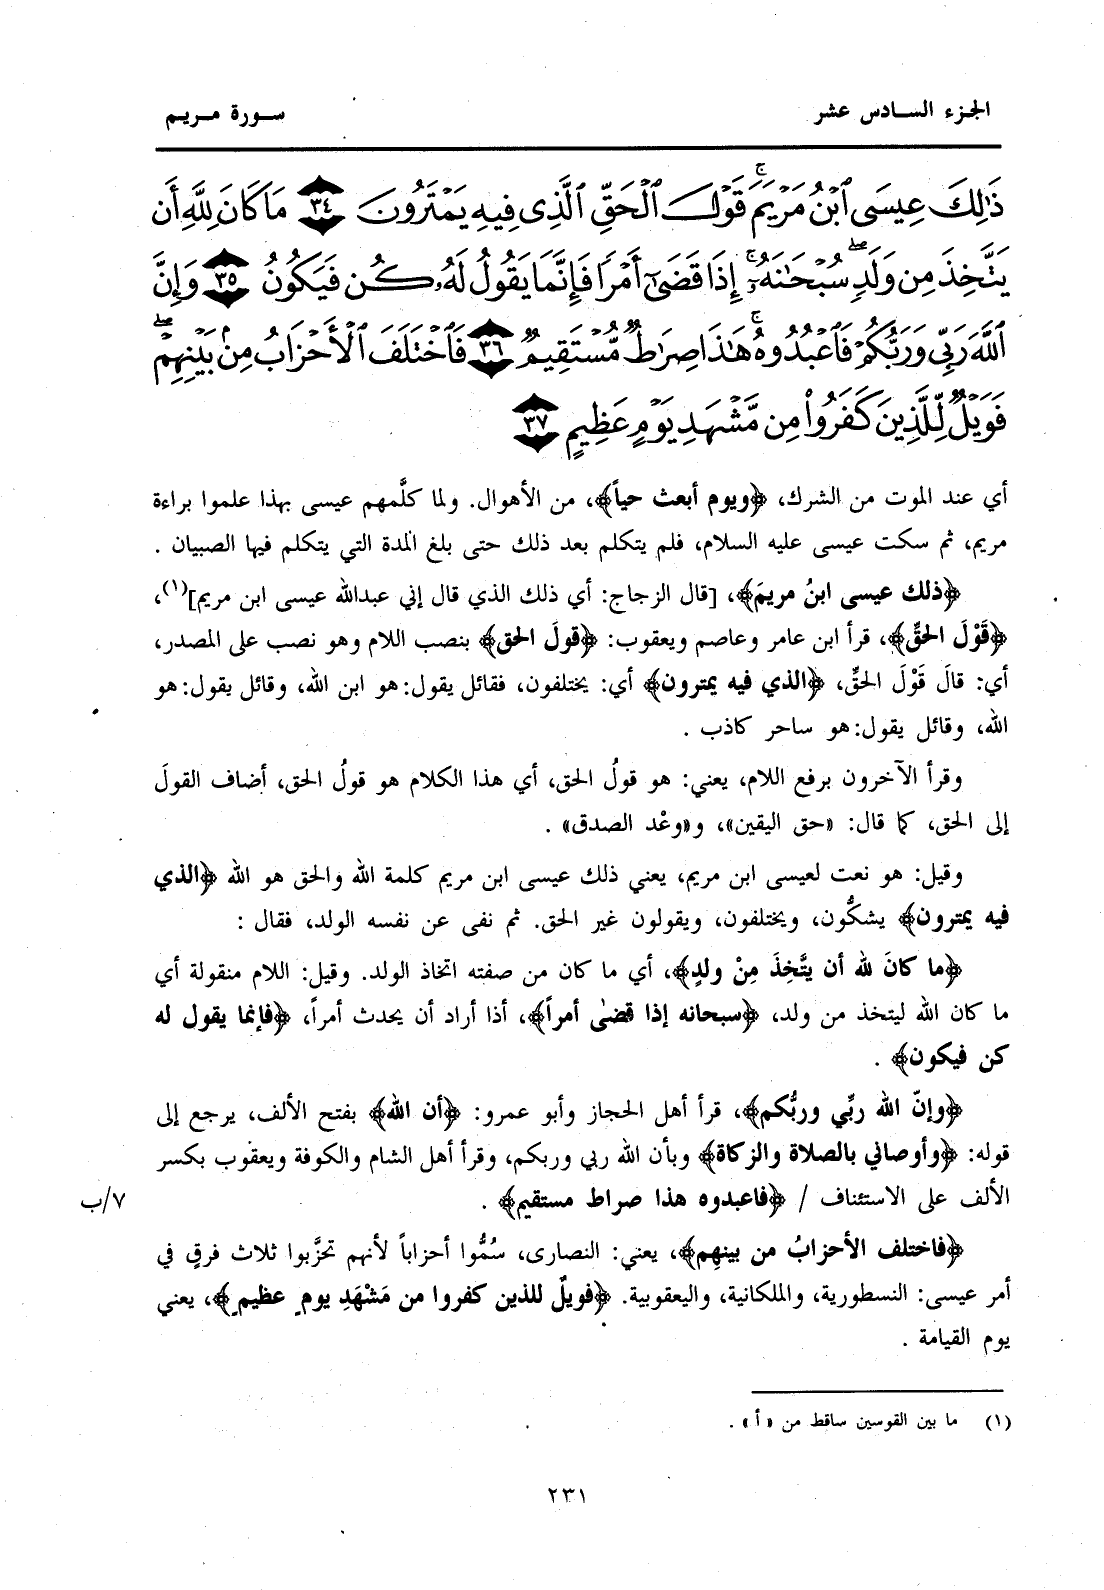 الجزء السادس عشر
سورة مريم
ذَٰلِكَ عِيسَى ٱبۡنُ مَرۡيَمَۚ قَوۡلَ ٱلۡحَقِّ ٱلَّذِى فِيهِ يَمۡتَرُونَ ٣٤ مَا كَانَ لِلَّهِ أَن
يَتَّخِذَ مِن وَلَدٖۖ سُبۡحَٰنَهُۥٓۚ إِذَا قَضَىٰٓ أَمۡرٗا فَإِنَّمَا يَقُولُ لَهُۥ كُن فَيَكُونُ ٣٥ وَإِنَّ
ٱللَّهَ رَبِّى وَرَبُّكُمۡ فَٱعۡبُدُوهُۚ هَٰذَا صِرَٰطٞ مُّسۡتَقِيمٞ ٣٦ فَٱخۡتَلَفَ ٱلۡأَحۡزَابُ مِنۢ بَيۡنِهِمۡۖ
فَوَيۡلٞ لِّلَّذِينَ كَفَرُواْ مِن مَّشۡهَدِ يَوۡمٍ عَظِيمٍ ٣٧
أي عند الموت من الشرك، ﴿ويوم أبعث حياً﴾، من الأهوال. ولما كلَّمهم عيسى بهذا علموا براءة
مريم، ثم سكت عيسى عليه السلام، فلم يتكلم بعد ذلك حتى بلغ المدة التي يتكلم فيها الصبيان .
﴿ذلك عيسى ابنُ مريمَ﴾، [قال الزجاج: أي ذلك الذي قال إني عبدالله عيسى ابن مريم](١)،
﴿قَوْلَ الحقِّ﴾، قرأ ابن عامر وعاصم ويعقوب: ﴿قولَ الحق﴾ بنصب اللام وهو نصب على المصدر،
أي: قالَ قَوْلَ الحقِّ، ﴿الذي فيه يمترون﴾ أي: يختلفون، فقائل يقول: هو ابن الله، وقائل يقول: هو
الله، وقائل يقول: هو ساحر كاذب .
وقرأ الآخرون برفع اللام، يعني: هو قولُ الحق، أي هذا الكلام هو قولُ الحق، أضاف القولَ
إلى الحق، كما قال: «حق اليقين»، و«وعْد الصدق» .
وقيل: هو نعت لعيسى ابن مريم، يعني ذلك عيسى ابن مريم كلمة الله والحق هو الله ﴿الذي
فيه يمترون﴾ يشكُّون، ويختلفون، ويقولون غير الحق. ثم نفى عن نفسه الولد، فقال :
﴿ما كانَ لله أن يتَّخِذَ مِنْ ولدٍ﴾، أي ما كان من صفته اتخاذ الولد. وقيل: اللام منقولة أي
ما كان الله ليتخذ من ولد، ﴿سبحانه إذا قضىٰ أمراً﴾، أذا أراد أن يحدث أمراً، ﴿فإنما يقول له
كن فيكون﴾ .
﴿وإنّ الله ربِّي وربُّكم﴾، قرأ أهل الحجاز وأبو عمرو: ﴿أن الله﴾ بفتح الألف، يرجع إلى
قوله: ﴿وأوصاني بالصلاة والزكاة﴾ وبأن الله ربي وربكم، وقرأ أهل الشام والكوفة ويعقوب بكسر
الألف على الاستئناف / ﴿فاعبدوه هذا صراط مستقيم﴾ .
٧/ب
﴿فاختلف الأحزابُ من بينهم﴾، يعني: النصارى، سُمُّوا أحزاباً لأنهم تحزَّبوا ثلاث فرقٍ في
أمر عيسى: النسطورية، والملكانية، واليعقوبية. ﴿فويلٌ للذين كفروا من مَشْهَدِ يومٍ عظيمٍ﴾، يعني
يوم القيامة .
(١) ما بين القوسين ساقط من «أ» .
٢٣١